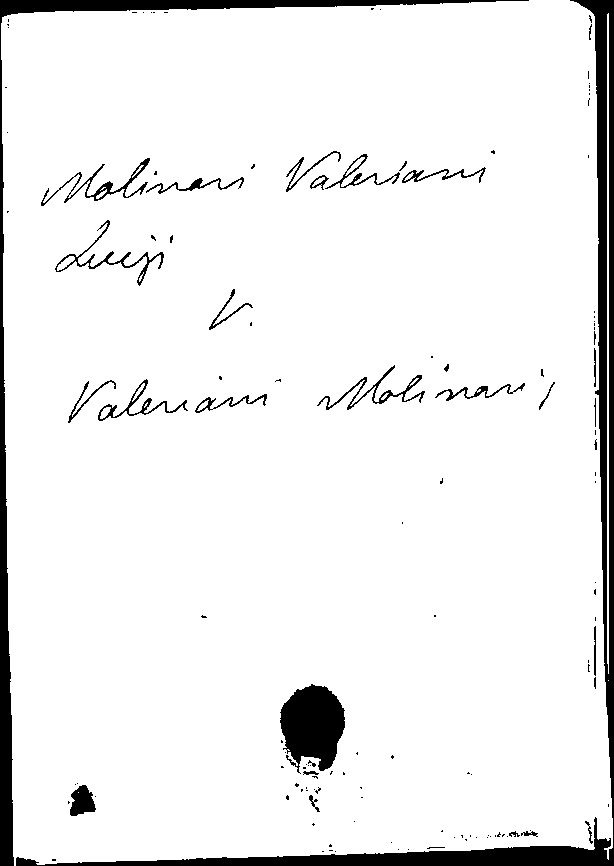 Molinari Valeriani
Luigi
V.
Valeriani Molinari,